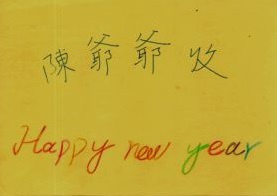 陳爺爺收
Happy new year